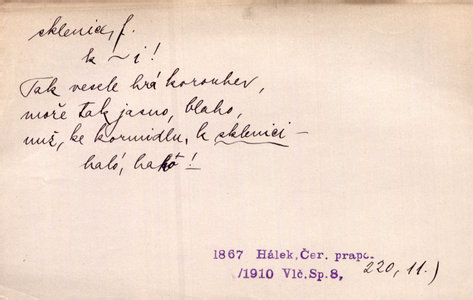 sklenice, f.
k ~ i!
Tak vesele hrá korouhev,
moře tak jasno, blaho,
nuž, ke kormidlu, k sklenici –
haló, haló!
1867 Hálek, Čer. prapo.
/1910 Vlč. Sp. 8, 220, 11.)